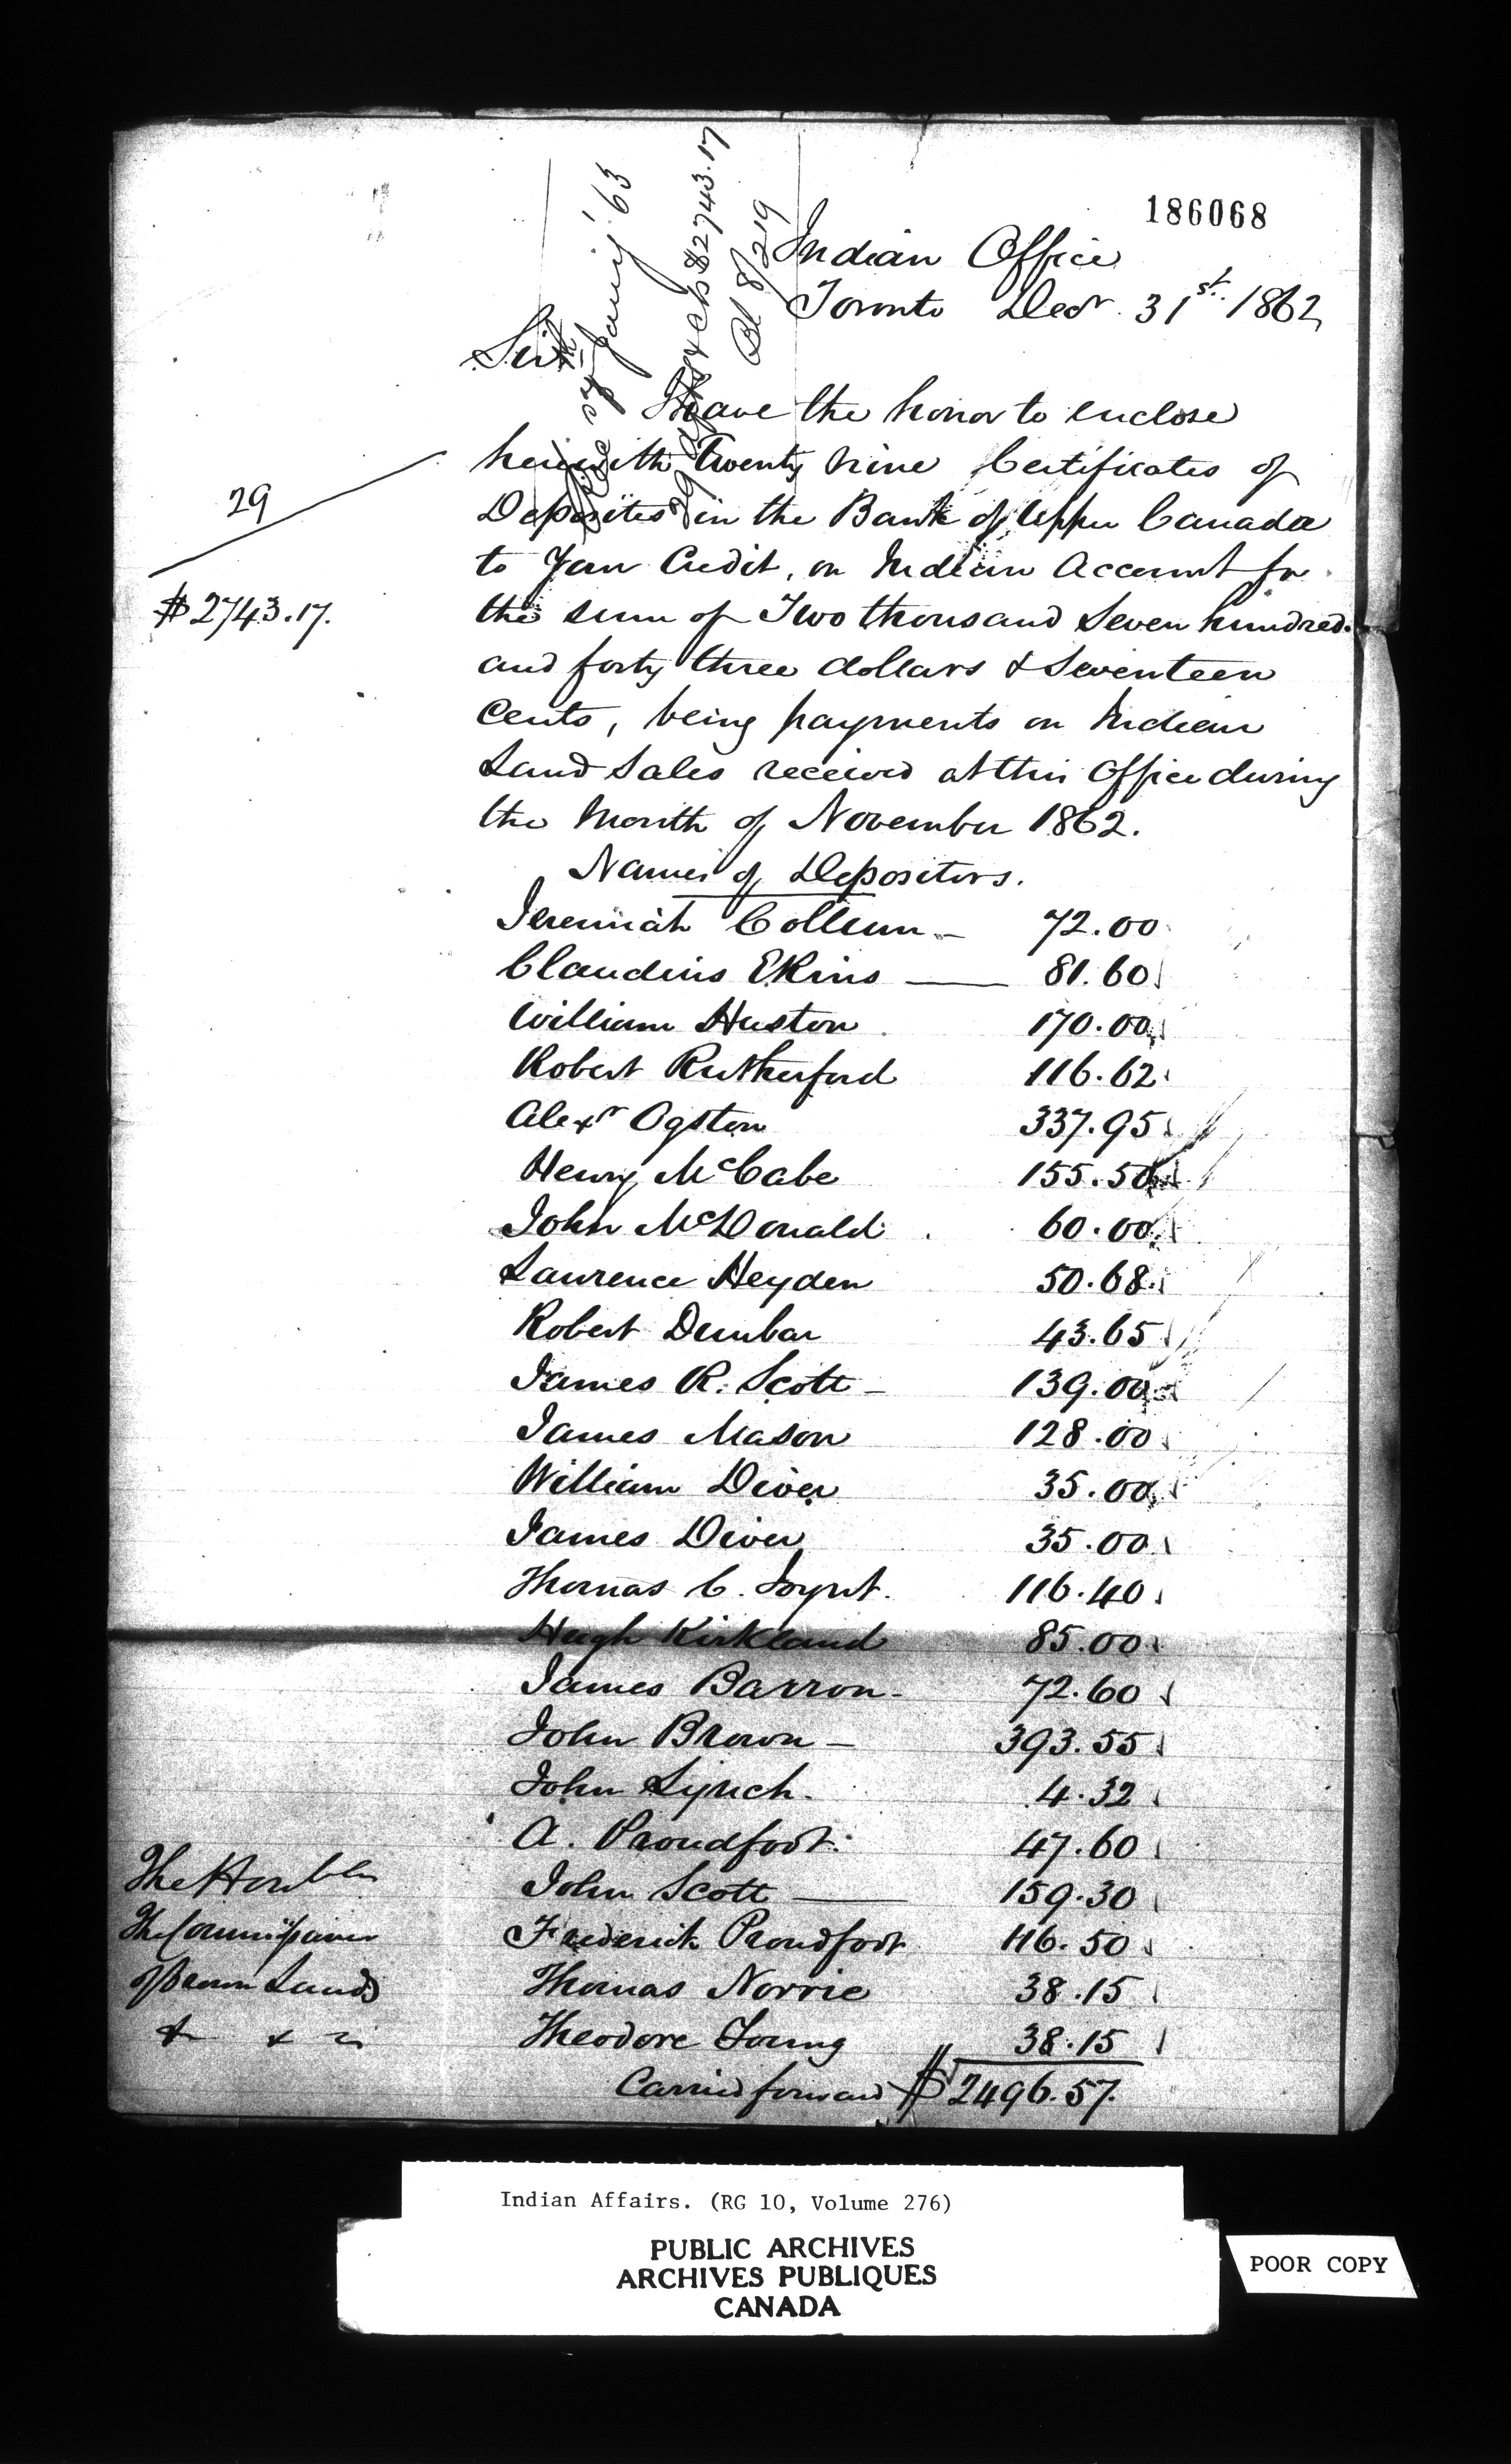 186068
Indian Office
Toronto Decr. 31st. 1862
Sir
I have the honor to enclose
herewith Twenty nine Certificates of
Deposites in the Bank of Upper Canada
to Your Credit, on Indian Account for
the sum of Two thousand Seven hundred
and forty three dollars & Seventeen
Cents, being payments on Indian
Land Sales received at this Office during
the Month of November 1862.
29
$2743.17.
Jany '63
$2743.17
Bl 8/219
Names of Depositors.
Jeremiah - 72.00
Claudius Ekins — 81.60
William Huston 170.00
Robert Rutherford 116.62
Alexr Ogston 337.95
Henry McCabe 155.50
John McDonald 60.00
Lawrence Heyden 50.68
Robert Dunbar 43.65
James R. Scott - 139.00
James Mason 128.00
William Diver 35.00
James Diver 35.00
Thomas C. 116.40
Hugh Kirkland 85.00
James Barron - 72.60
John Brown - 393.55
John Lynch. 4.32
A. Proudfoot. 47.60
John Scott — 159.30
Frederick Proudfoot 116.50
Thomas Norrie 38.15
Theodore Young 38.15
Carried forward $2496.57.
The Honble
The Commissioner
of Crown Lands
Indian Affairs. (RG 10, Volume 276)
PUBLIC ARCHIVES
ARCHIVES PUBLIQUES
CANADA
POOR COPY